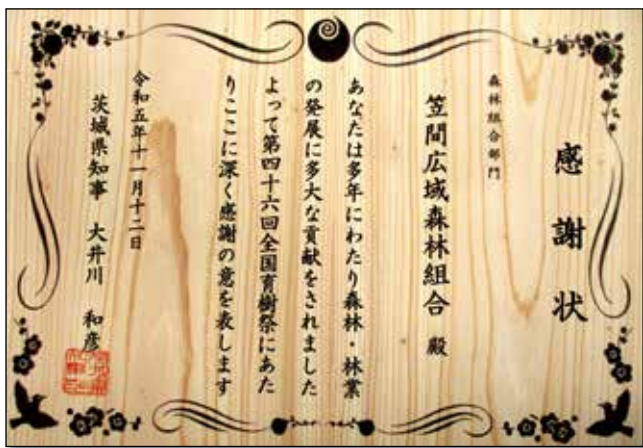 感謝状
森林組合部門
笠間広域森林組合 殿
あなたは多年にわたり森林・林業
の発展に多大な貢献をされました
よって第四十六回全国育樹祭にあた
りここに深く感謝の意を表します
令和五年十一月十二日
茨城県知事 大井川 和彦